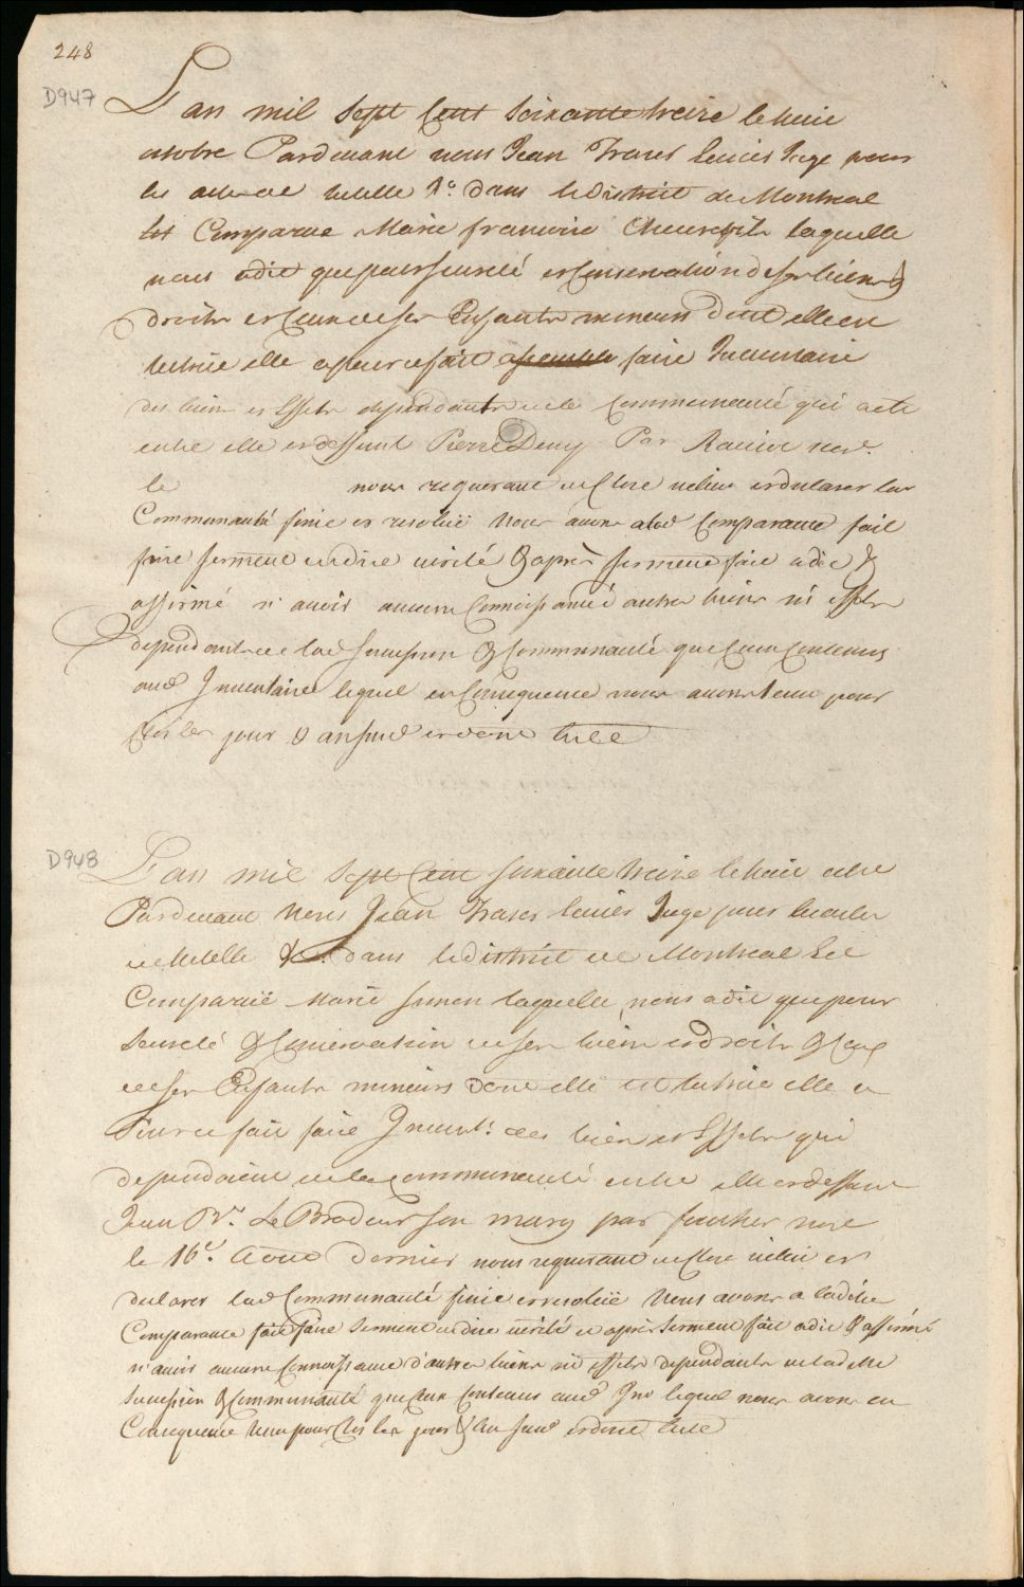 248
D947
L'an mil Sept Cent Soixante treize le huit
octobre Pardevant nous Jean Fraser Ecuier Juge pour
les actes de tutelle &c. dans le District de Montreal
Est Comparue Marie francoise Cheurefils laquelle
nous a dit que pour seureté et Conservation de ses biens &
droits et Ceux de ses Enfants mineurs dont elle est
tutrice elle a pour ce fait faire Inventaire
des biens et Effets dependants de la Communauté qui a été
entre elle et deffunt Pierre Deny Par Racicot nore.
le nous requerant de Clore icelui et declarer lad
Communauté finie et resolüe Nous avons a lad Comparante fait
faire serment de dire verité & après serment fait a dit &
affirmé n'avoir aucune Connoissance d'autres biens ni effets
dependants de lad Succession & Communauté que Ceux Contenus
aud Inventaire lequel en Consequence nous avons tenu pour
Clos les jour & an susd et donné acte
D948
L'an mil Sept Cent Soixante treize le huit octre
Pardevant Nous Jean Fraser Ecuier Juge pour les actes
de tutelle &c. dans le district de Montreal Est
Comparüe Marie Simon laquelle nous a dit que pour
Seureté & Conservation de ses biens et droits & Ceux
de ses Enfants mineurs dont elle est tutrice elle a
Pour ce fait faire Invent: des biens et Effets qui
dependoient de la Communauté entre elle et deffunt
Jean Bte. Le Brodeur son mary par foucher nore
le 16e. Aout Dernier nous requerant de Clore icelui et
declarer lad Communauté finie et resolüe Nous avons a ladite
Comparante fait faire Serment de dire verité et après Serment fait a dit & affirmé
n'avoir aucune Connoissance d'autres biens ni effets dependants de ladite
Succession & Communauté que Ceux Contenus aud Inv lequel nous avons en
Consequence tenu pour Clos les jour & an susd et donné acte